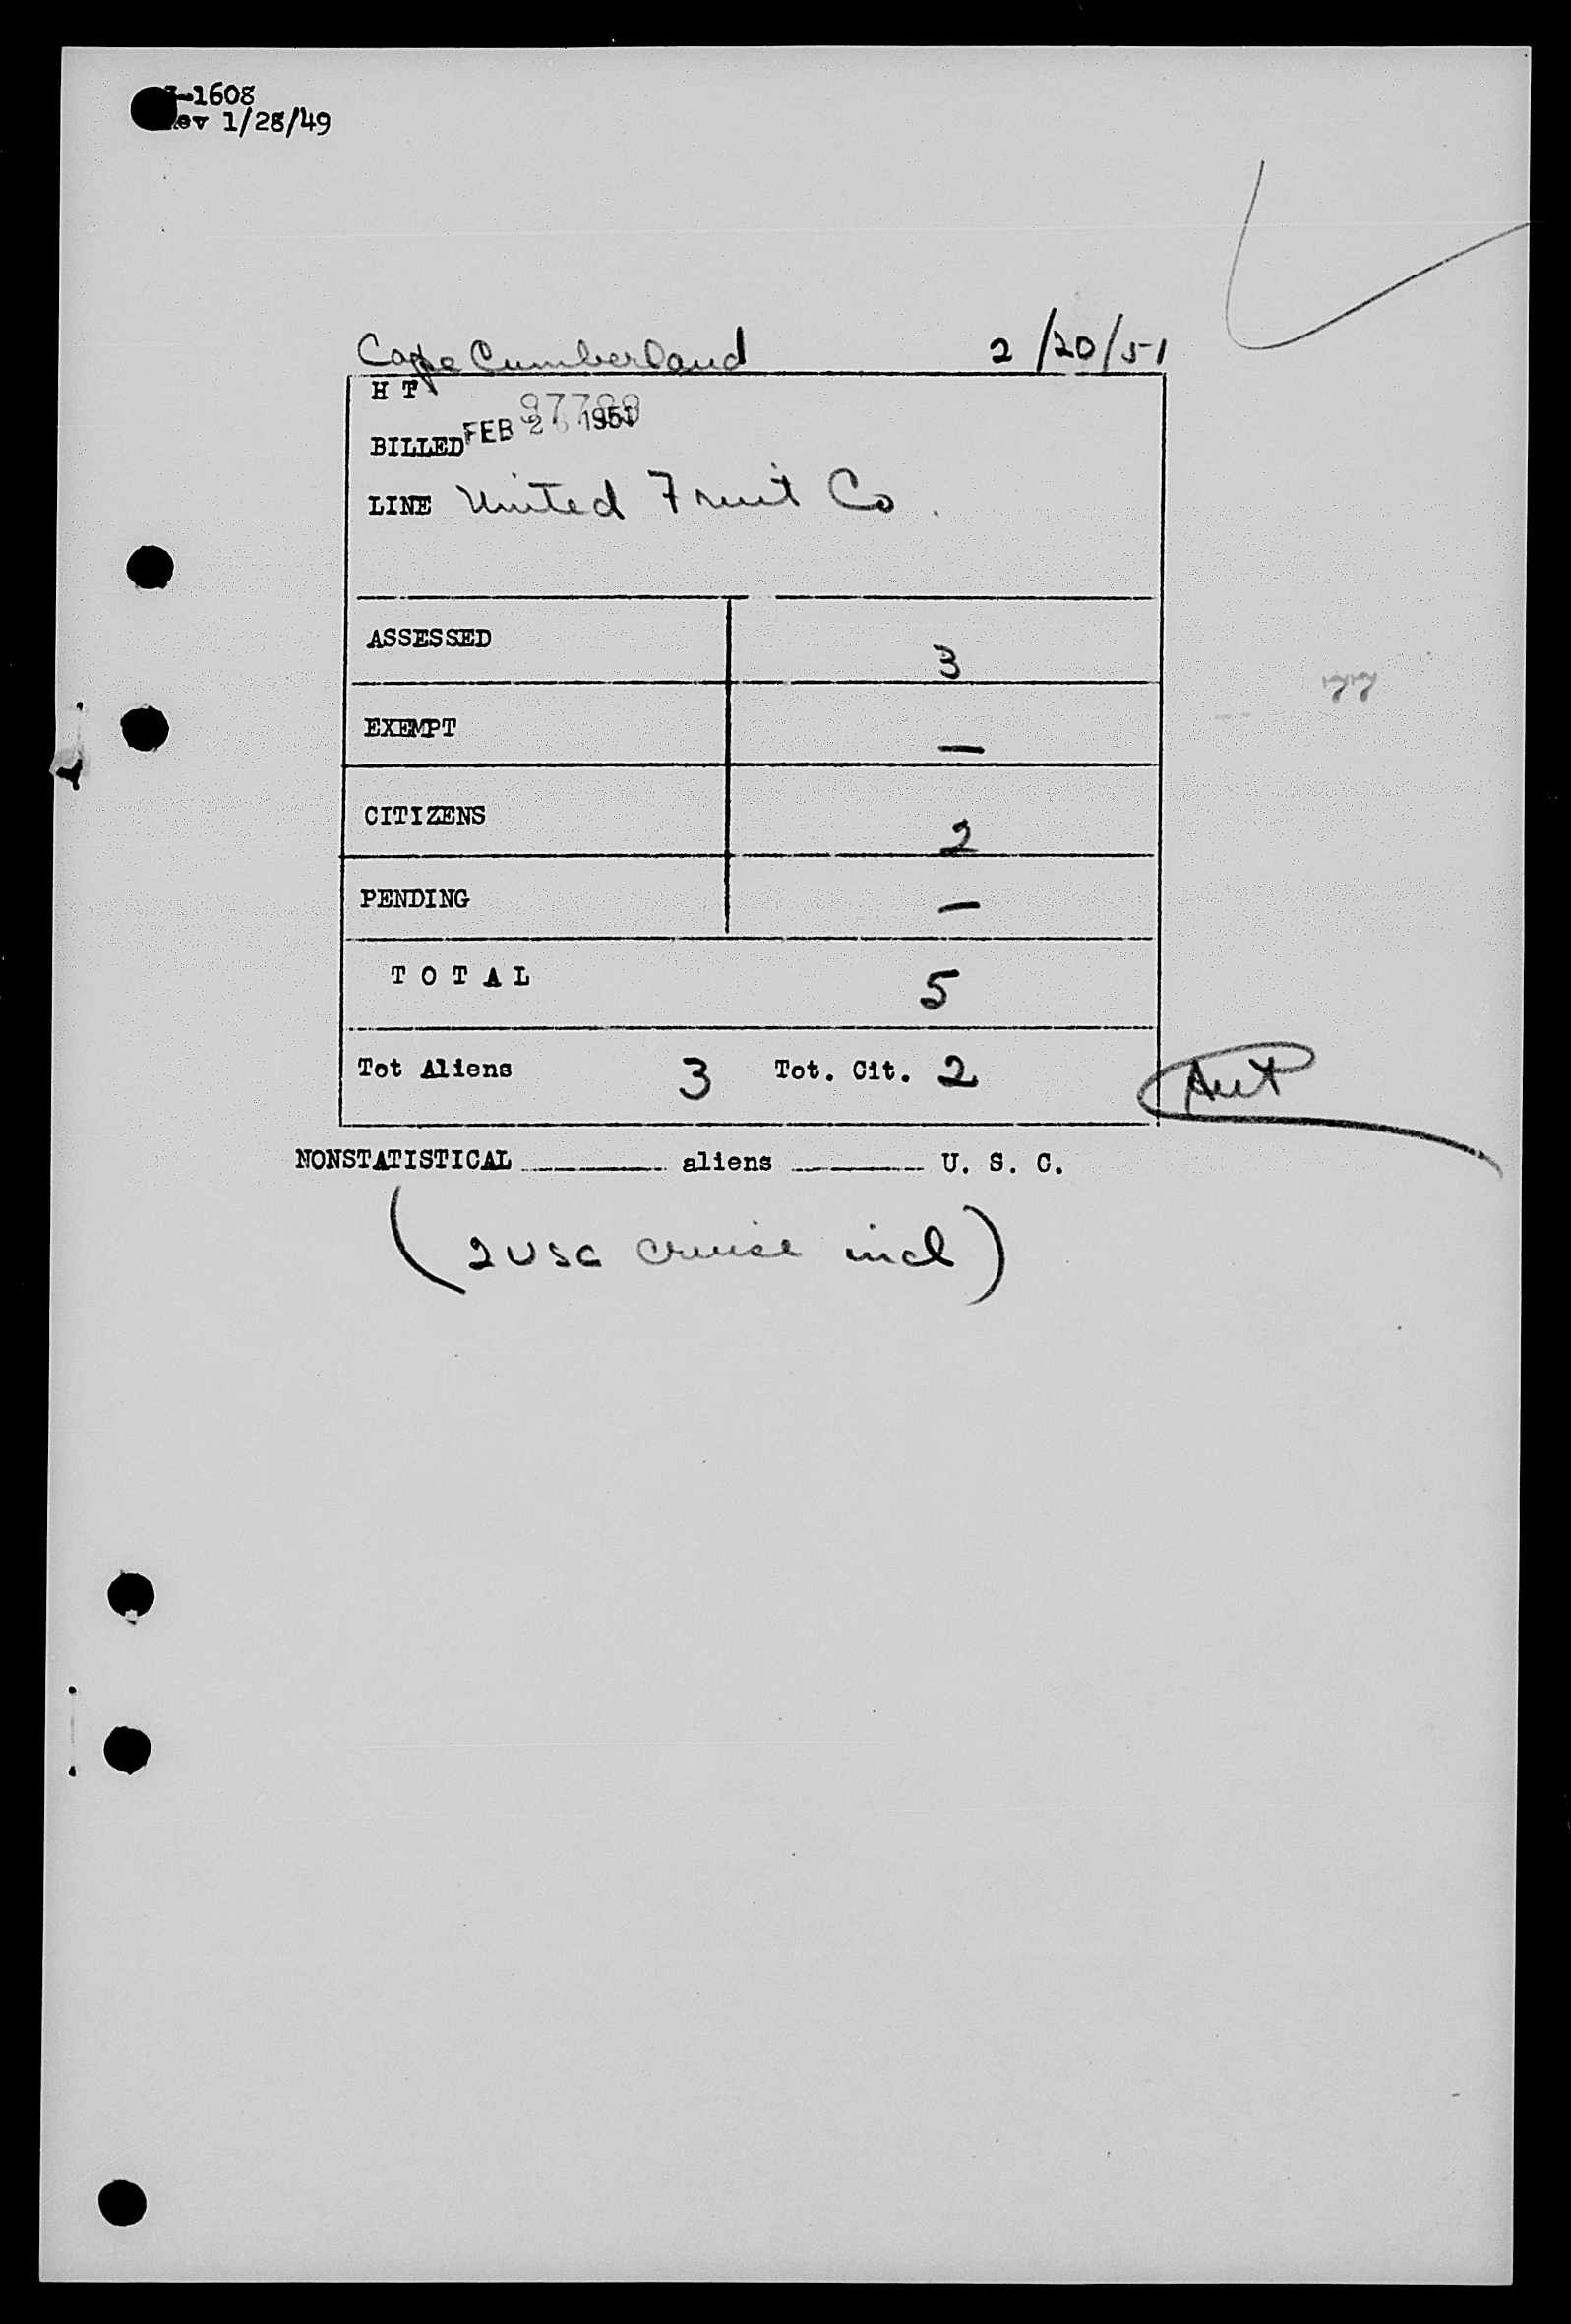 -1608
Rev 1/28/49
Cape Cumberland 2/20/51
H T
BILLED FEB 26 1951
LINE United Fruit Co.
ASSESSED 3
EXEMPT —
CITIZENS 2
PENDING —
T O T A L 5
Tot Aliens 3 Tot. Cit. 2
NONSTATISTICAL ______ aliens ______ U. S. C.
(2 USC cruise incl)